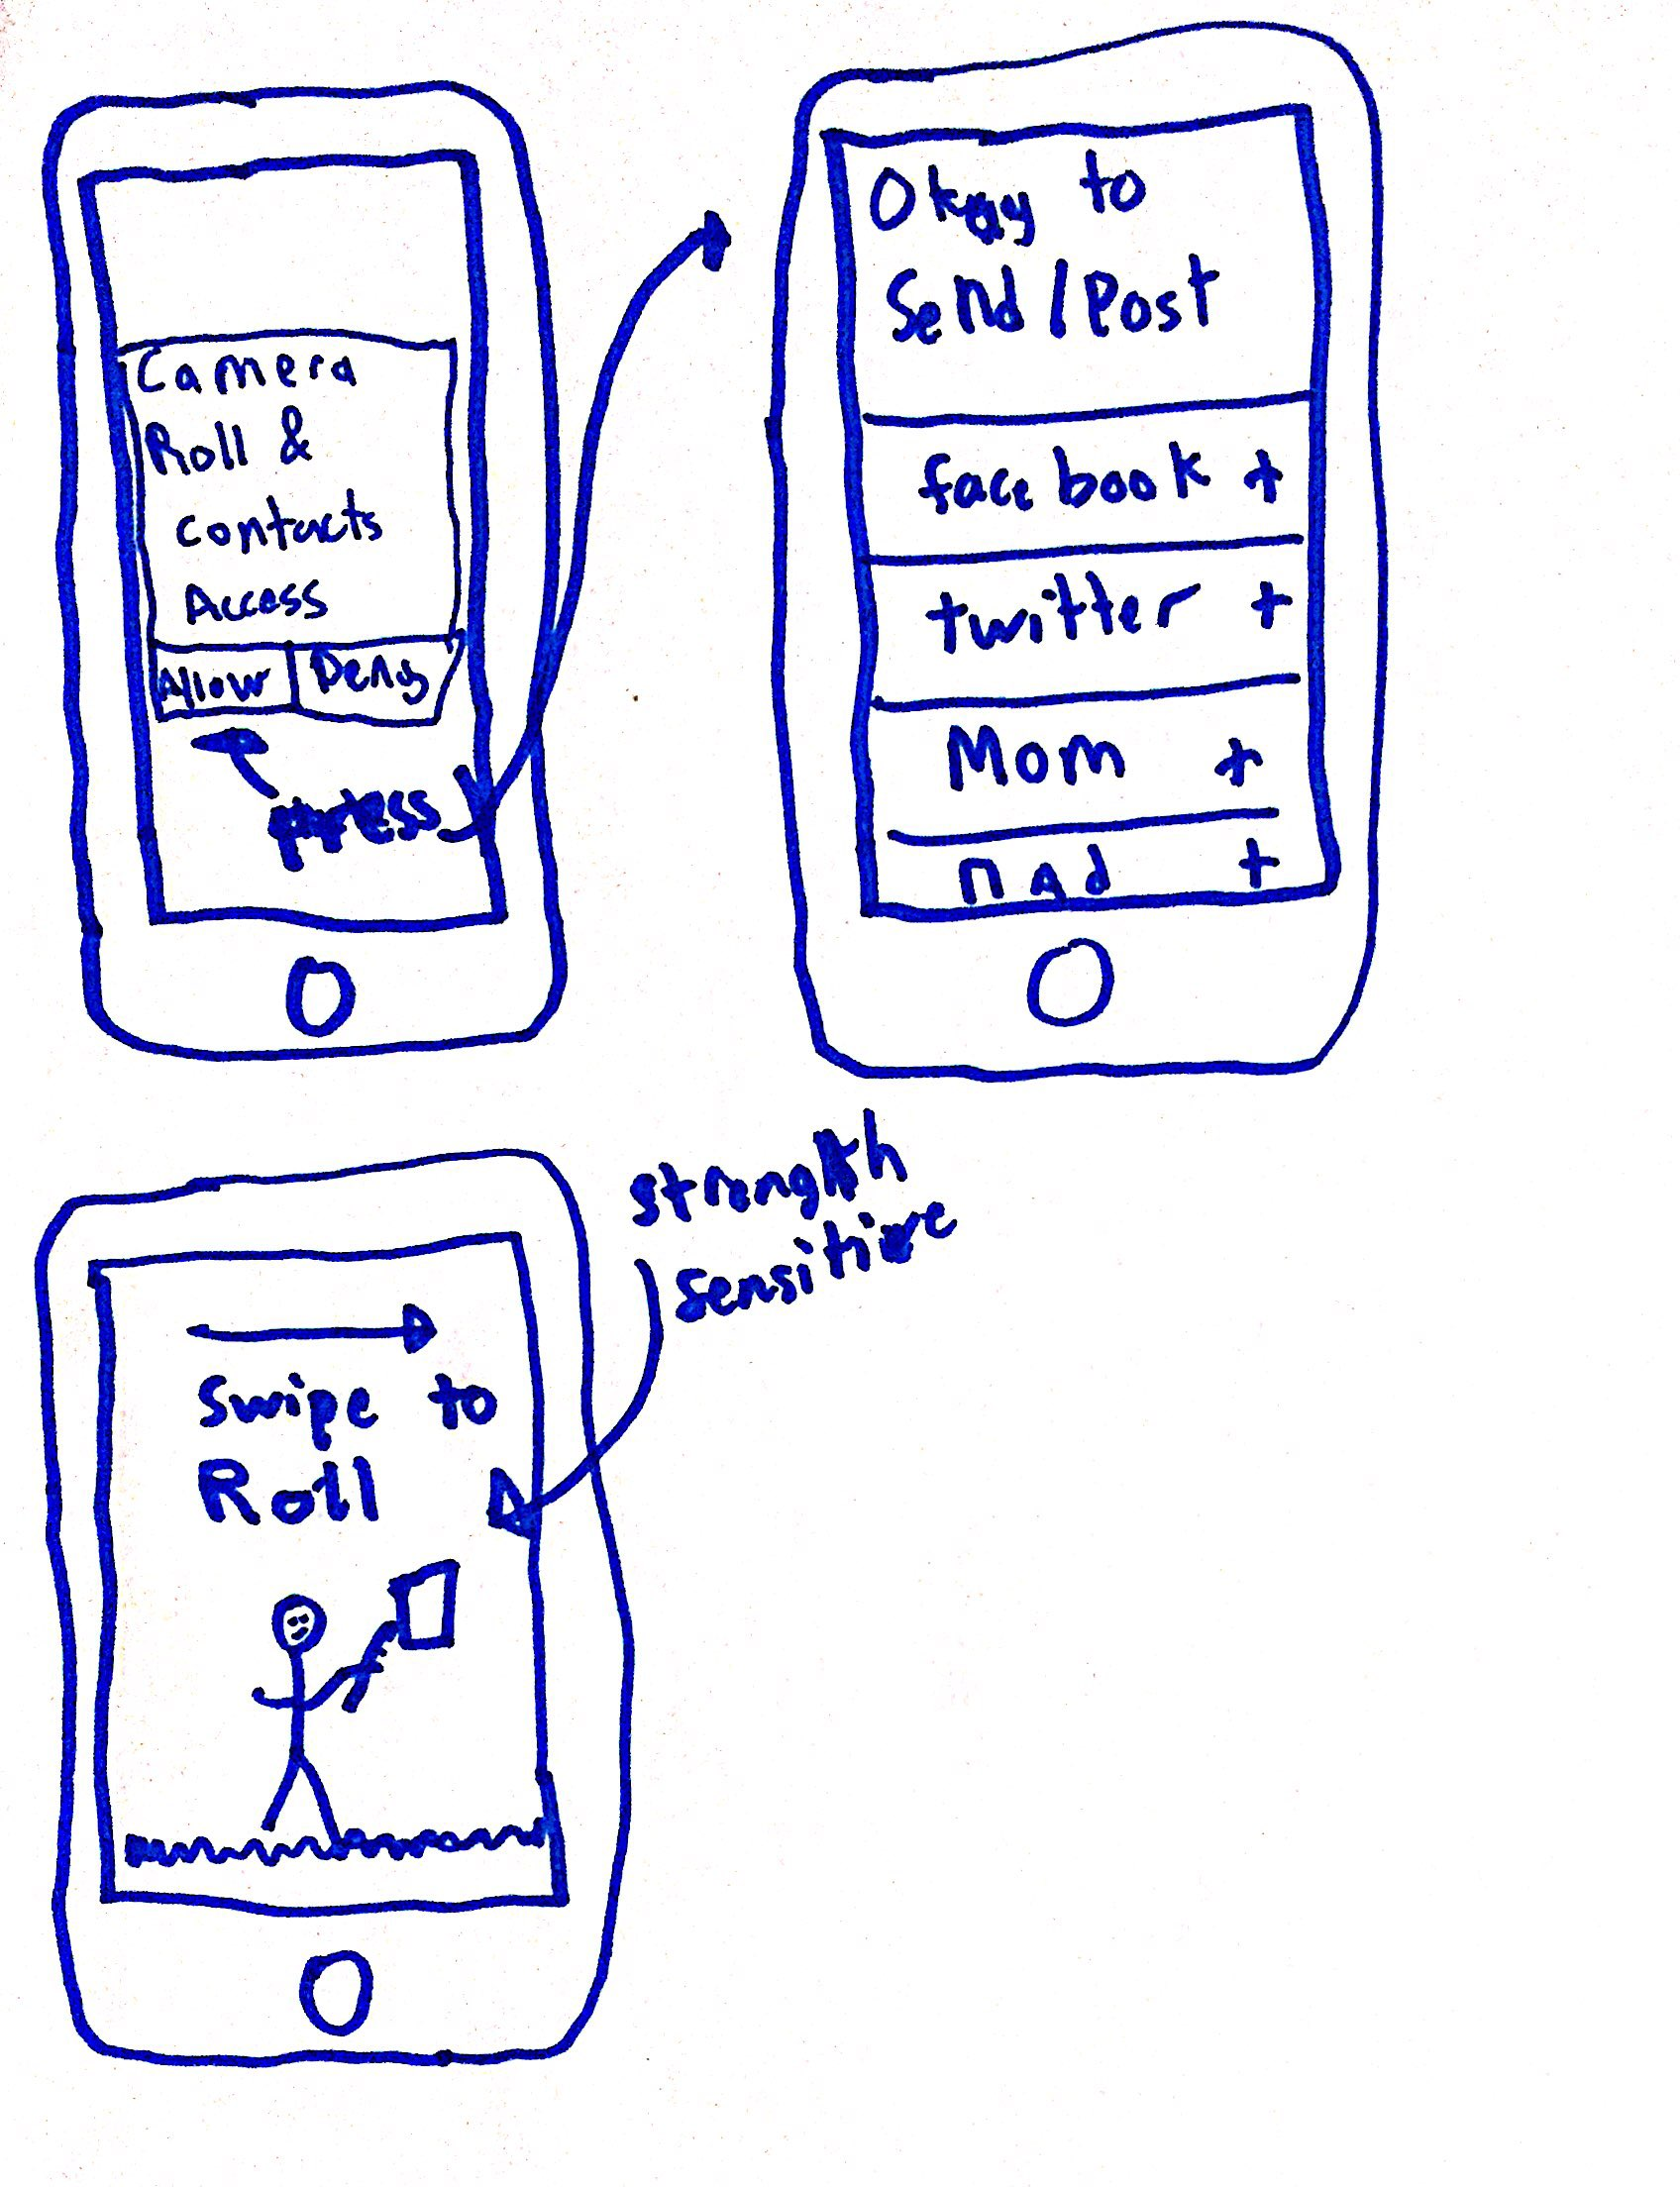 Camera
Roll &
contacts
Access
Allow Deny
press
Okay to
Send/Post
facebook +
twitter +
Mom +
DAd +
strength
sensitive
Swipe to
Roll